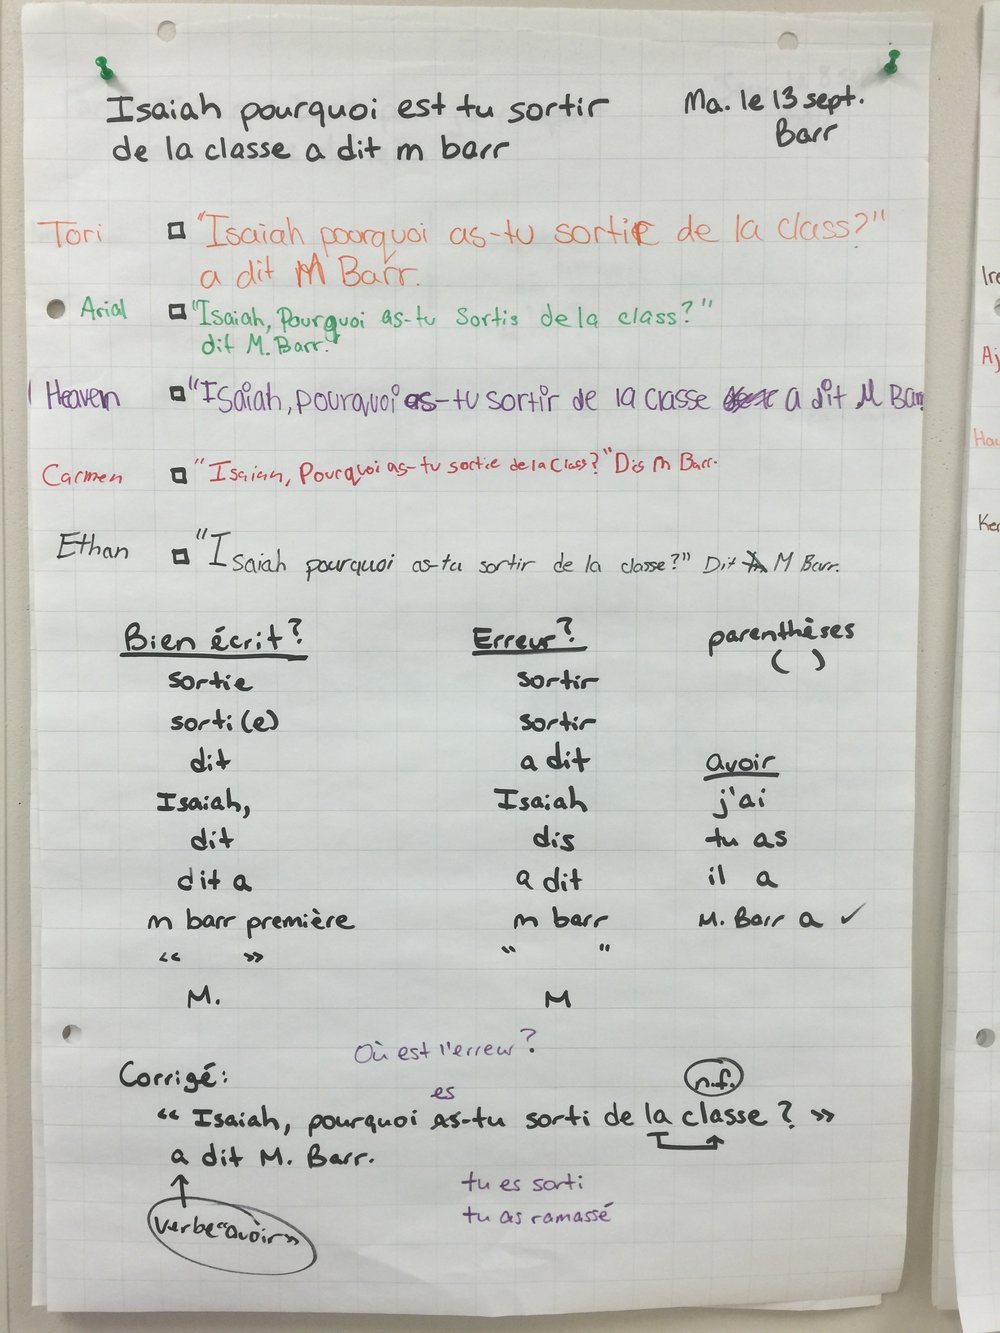 Isaiah pourquoi est tu sortir
de la classe a dit m barr
Ma. le 13 sept.
Barr
Tori "Isaiah pourquoi as-tu sortie de la class?"
a dit M Barr.
Arial "Isaiah, Pourquoi as-tu Sortis de la class?"
dit M. Barr."
Heaven "Isaiah, pourquoi as-tu sortir de la classe a dit M Barr
Carmen "Isaiah, Pourquoi as-tu sortie de la Class?" Dis m Barr.
Ethan "Isaiah pourquoi as-tu sortir de la classe?" Dit M Barr.
Bien écrit? Erreur? parenthèses
( )
sortie sortir
sorti(e) sortir
dit a dit avoir
Isaiah, Isaiah j'ai
dit dis tu as
dit a a dit il a
m barr première m barr M. Barr a ✓
« » " "
M. M
Où est l'erreur?
Corrigé: n.f.
es
« Isaiah, pourquoi as-tu sorti de la classe ? »
a dit M. Barr.
tu es sorti
tu as ramassé
verbe «avoir»
Ire
Aj
Hau
Ker